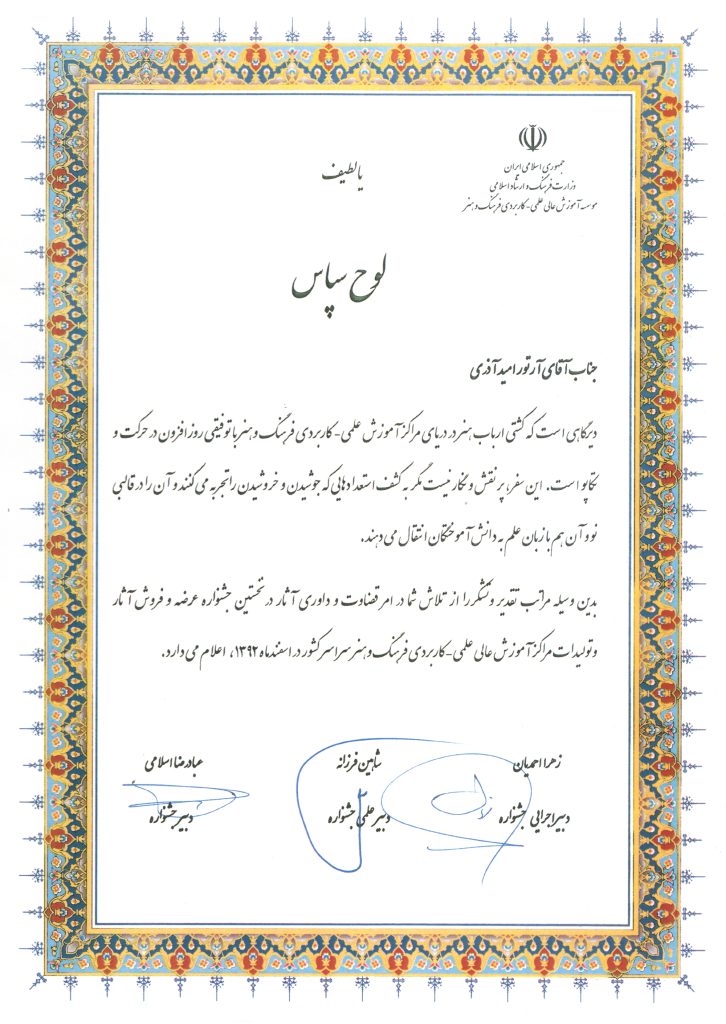 جمهوری اسلامی ایران
وزارت فرهنگ و ارشاد اسلامی
موسسه آموزش عالی علمی - کاربردی فرهنگ و هنر
یا لطیف
لوح سپاس
جناب آقای آرتور امید آذری
دیرگاهی است که کشتی ارباب هنر در دریای مراکز آموزش علمی - کاربردی فرهنگ و هنر با توفیقی روز افزون در حرکت و
تکاپو است. این سفر، پر نقش و نگار نیست مگر به کشف استعدادهایی که جوشیدن و خروشیدن را تجربه می کنند و آن را در قالبی
نو و آن هم با زبان علم به دانش آموختگان انتقال می دهند.
بدین وسیله مراتب تقدیر و تشکر را از تلاش شما در امر قضاوت و داوری آثار در نخستین جشنواره عرضه و فروش آثار
و تولیدات مراکز آموزش عالی علمی - کاربردی فرهنگ و هنر سراسر کشور در اسفند ماه ۱۳۹۲، اعلام می دارد.
زهرا احمدیان
شاهین فرزانه
عبادرضا اسلامی
دبیر اجرایی جشنواره
دبیر علمی جشنواره
دبیر جشنواره